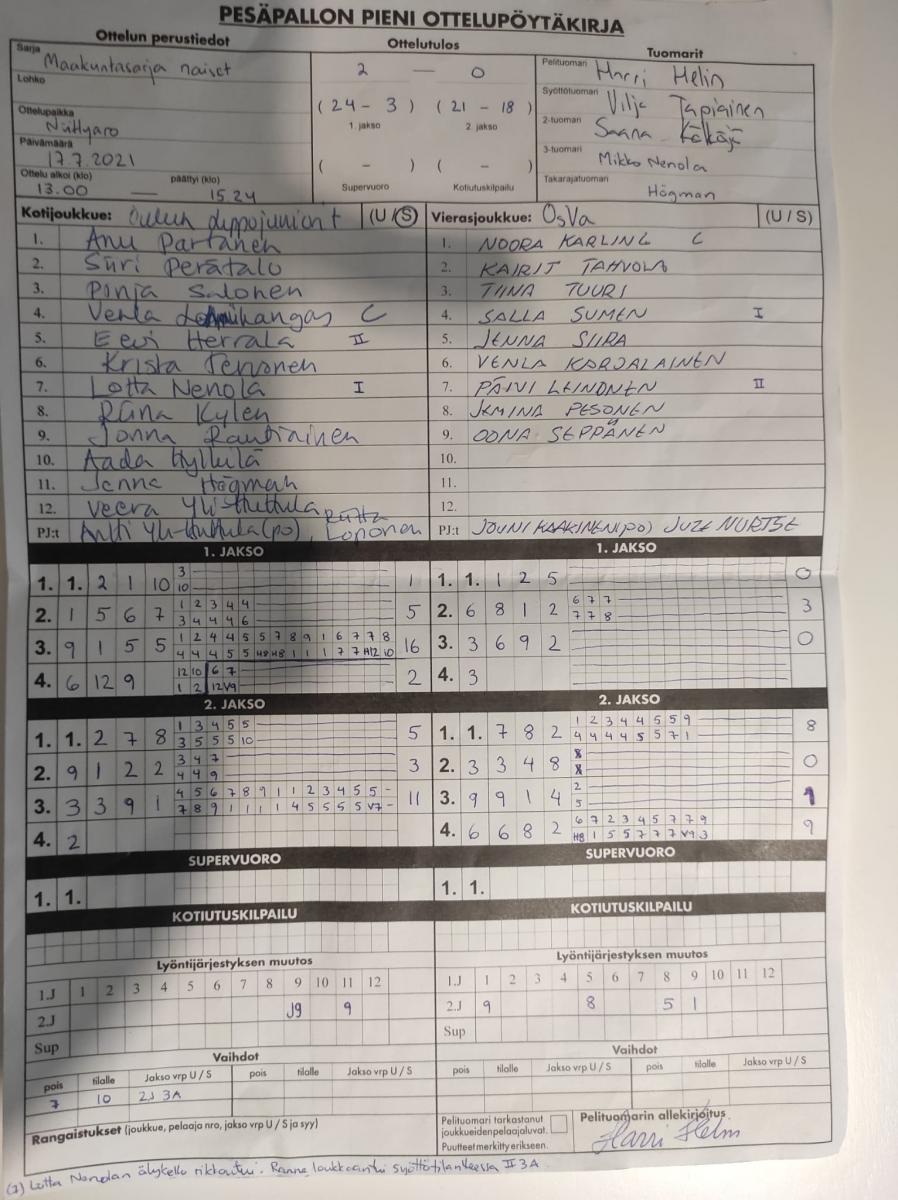 PESÄPALLON PIENI OTTELUPÖYTÄKIRJA
Ottelun perustiedot Ottelutulos Tuomarit
Sarja Maakuntasarja naiset
Lohko
Ottelupaikka
Päivämäärä 17.7.2021
Ottelu alkoi (klo) päättyi (klo)
13.00 — 15.24
2 — 0
(24 - 3) (21 - 18)
1. jakso 2. jakso
( - ) ( - )
Supervuoro Kotiutuskilpailu
Pelituomari Harri Helin
Syöttötuomari Vilja Tapiainen
2-tuomari Saana
3-tuomari Mikko Nenola
Takarajatuomari Högman
Kotijoukkue: Oulun Lippojuniorit (U / S)
1. Anu Partanen
2. Siiri Perätalo
3. Pinja Salonen
4. Venla C
5. Eevi Herrala II
6. Krista Tervonen
7. Lotta Nenola I
8. Kylen
9. Jonna Rautiainen
10. Aada Hyllilä
11. Jenna Högman
12. Veera Yli-Huttula
PJ:t Antti Yli-Huttula (po), Riitta Loponen
Vierasjoukkue: OsVa (U / S)
1. NOORA KARLING C
2. KAIRIT TAHVOLA
3. TIINA TUURI
4. SALLA SUMEN I
5. JENNA SIIRA
6. VENLA KARJALAINEN
7. PÄIVI LEINONEN II
8. JEMINA PESONEN
9. OONA SEPPÄNEN
10.
11.
12.
PJ:t JOUNI HAAKINEN (PO)
1. JAKSO
1. 1. 2 1 10 1
3
10
2. 1 5 6 7 5
1 2 3 4 4
3 4 4 4 6
3. 9 1 5 5 16
1 2 4 4 5 5 7 8 9 1 6 7 7 8
4 4 4 5 5 H8 H8 1 1 1 7 7 H12 10
4. 6 12 9 2
12 10 6 7
1 2 12 V9
1. JAKSO
1. 1. 1 2 5 0
2. 6 8 1 2 3
6 7 7
7 7 8
3. 3 6 9 2 0
4. 3
2. JAKSO
1. 1. 2 7 8 5
1 3 4 5 5
3 5 5 5 10
2. 9 1 2 2 3
3 4 7
4 4 9
3. 3 3 9 1 11
4 5 6 7 8 9 1 1 2 3 4 5 5 -
7 8 9 1 1 1 1 4 5 5 5 5 V7 -
4. 2
2. JAKSO
1. 1. 7 8 2 8
1 2 3 4 4 5 5 9
4 4 4 4 5 5 7 1
2. 3 3 4 8 0
3. 9 9 1 4 1
2
5
4. 6 6 8 2 9
6 7 2 3 4 5 7 7 9
H8 1 5 5 7 7 7 V9 3
SUPERVUORO SUPERVUORO
1. 1. 1. 1.
KOTIUTUSKILPAILU KOTIUTUSKILPAILU
Lyöntijärjestyksen muutos
1.J 1 2 3 4 5 6 7 8 9 10 11 12
2.J J9 9
Sup
Lyöntijärjestyksen muutos
1.J 1 2 3 4 5 6 7 8 9 10 11 12
2.J 9 8 5 1
Sup
Vaihdot Vaihdot
pois tilalle Jakso vrp U / S pois tilalle Jakso vrp U / S
7 10 2J 3A
pois tilalle Jakso vrp U / S pois tilalle Jakso vrp U / S
Rangaistukset (joukkue, pelaaja nro, jakso vrp U / S ja syy)
Pelituomari tarkastanut
joukkueiden pelaajaluvat.
Puutteet merkitty erikseen.
Pelituomarin allekirjoitus
Harri Helin
(7) Lotta Nenolan älykello rikkoutui. Ranne loukkaantui syöttötilanteessa II 3A.